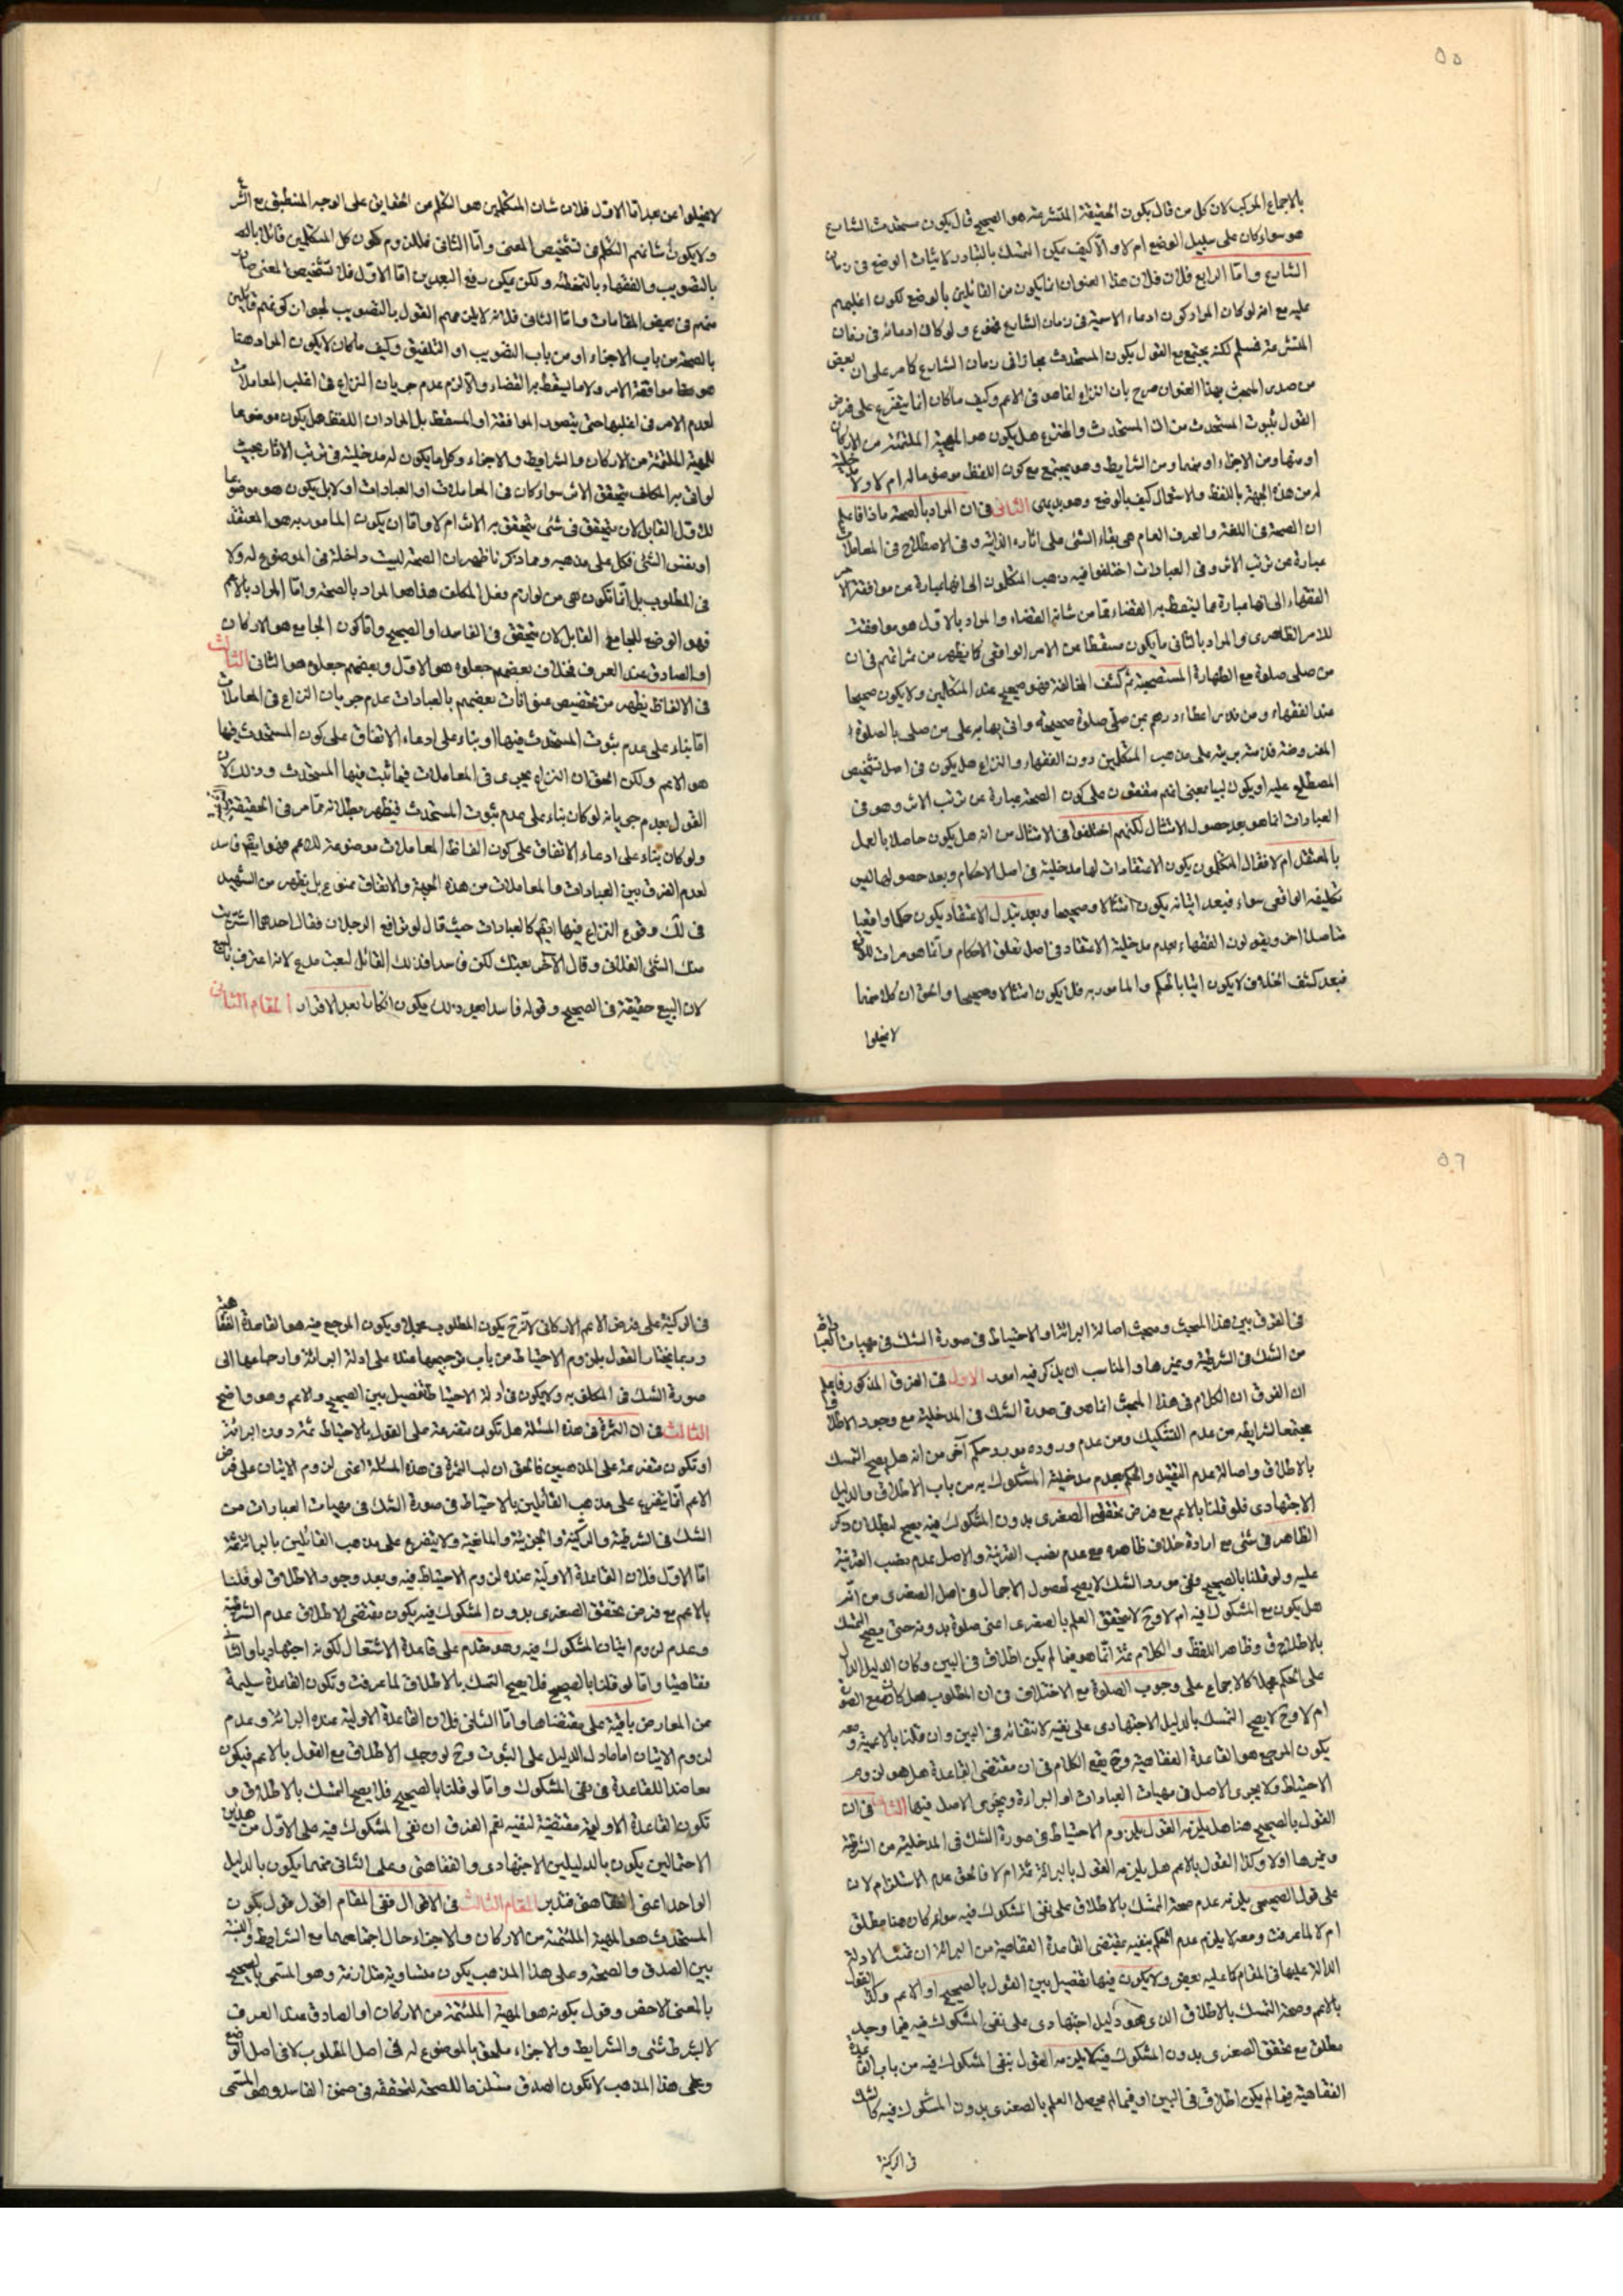 ٥٥
بالاجماع المركب لان كل من قال بكون الحقيقة المتشرعة هو الصحيح قال بكون مستحدث الشارع
هو سواء كان على سبيل الوضع ام لا والا كيف يمكن التمسك بالتبادر لاثبات الوضع فى زمان
الشارع واما الرابع فلان هذا العنوان انما يكون من القائلين بالوضع لكون اغلبهم
عليه مع انه لو كان المراد كون ادعاء الاعمية فى زمان الشارع فممنوع ولو كان ادعائه فى زمان
المتشرعة فمسلم لكنه يجتمع مع القول بكون المستحدث مجازا فى زمان الشارع كما مر على ان بعض
من صدر المبحث بهذا العنوان صرح بان النزاع انما هو فى الاعم وكيف ما كان انما يتفرع على فرض
القول بثبوت المستحدث من ان المستحدث والمخترع هل يكون هو المهية الملتئمة من الاركان
او منها ومن الاجزاء او منهما ومن الشرايط وهو يجتمع مع كون اللفظ موضوعا له ام لا ولا مدخلية
له من هذه الجهة باللفظ والاستعمال كيف بالوضع وهو بديهى الثانى فى ان المراد بالصحة ماذا فاعلم
ان الصحة فى اللغة والعرف العام هى بقاء الشئ على اثاره الذاتية وفى الاصطلاح فى المعاملات
عبارة عن ترتب الاثر وفى العبادات اختلفوا فيه ذهب المتكلمون الى انها عبارة عن موافقة الامر
الفقهاء الى انها عبارة عما يسقط به القضاء مما من شانه القضاء والمراد بالاول هو موافقة
للامر الظاهرى والمراد بالثانى ما يكون مسقطا عن الامر الواقعى كما يظهر من ثمراتهم فى ان
من صلى صلوة مع الطهارة المستصحبة ثم كشف المخالفة فهو صحيح عند المتكلمين ولا يكون صحيحا
عند الفقهاء ومن نذر اعطاء درهم بمن صلى صلوة صحيحة واتى بها بر على من صلى بالصلوة
المفروضة فذمته برية على مذهب المتكلمين دون الفقهاء والنزاع هل يكون فى اصل تشخيص
المصطلح عليه او يكون لبيا بمعنى انهم متفقون على كون الصحة عبارة عن ترتب الاثر وهو فى
العبادات انما هو بعد حصول الامتثال لكنهم اختلفوا فى الامتثال من انه هل يكون حاصلا بالعمل
بالمعتقل ام لا فقال المتكلمون بكون الاعتقادات لها مدخلية فى اصل الاحكام وبعد حصولها ليس
تكليفه الواقعى سواء فبعد اتيانه يكون امتثالا وصحيحا وبعد تبدل الاعتقاد يكون حكما واقعيا
حاصلا اخر ويقولون الفقهاء بعدم مدخلية الاعتقاد فى اصل تعلق الاحكام وانما هو مرات للواقع
فبعد كشف الخلاف لا يكون اتيا بالحكم والمامور به فلا يكون امتثالا وصحيحا والحق ان كلا منهما
لا يخلوا
لا يخلوا عن بعد اما الاول فلان شان المتكلمين هو التكلم من الحقايق على الوجه المنطبق مع الشرع
ولا يكون شانهم التكلم فى تشخيص المعنى واما الثانى فللزوم كون كل المتكلمين قائلا
بالتصويب والفقهاء بالتخطئة ولكن يمكن رفع البعدين اما الاول فلان تشخيص المعنى صار
منهم فى بعض المقامات واما الثانى فلانه لا يلزمهم القول بالتصويب لجواز كونهم قائلين
بالصحة من باب الاجزاء او من باب التصويب او التلفيق وكيف ما كان لا يكون المراد هنا
هو معنا موافقة الامر ولا ما يسقط به القضاء والا لزم عدم جريان النزاع فى اغلب المعاملات
لعدم الامر فى اغلبها حتى يتصور الموافقة او المسقط بل المراد ان اللفظ هل يكون موضوعا
للمهية الملتئمة من الاركان والشرايط والاجزاء وكلما يكون له مدخلية فى ترتب الاثار بحيث
لو اتى به المكلف يتحقق الاثر سواء كان فى المعاملات او العبادات او لا بل يكون هو موضوعا
لك القابل لان يتحقق فى شئ يتحقق به الاثر ام لا واما ان يكون المامور به هو المعتقد
او نفس الشئ فكل على مذهبه ومما ذكرنا ظهر ان الصحة ليست داخلة فى الموضوع له ولا
فى المطلوب بل انما تكون هى من لوازم فعل المكلف هذا هو المراد بالصحة واما المراد بالاعم
فهو الوضع للجامع القابل لان يتحقق فى الفاسد او الصحيح واما كون الجامع هو الاركان
او الصادق عند العرف فخلاف بعضهم جعلوه هو الاول وبعضهم جعلوه هو الثانى الثالث
فى الالفاظ يظهر من تخصيص عنوانات بعضهم بالعبادات عدم جريان النزاع فى المعاملات
اما بناء على عدم ثبوت المستحدث فيها او بناء على ادعاء الاتفاق على كون المستحدث فيها
هو الاعم ولكن الحق ان النزاع يجرى فى المعاملات فيما ثبت فيها المستحدث وذلك لان
القول بعدم جريانه لو كان بناء على عدم ثبوت المستحدث فيظهر بطلانه مما مر فى الحقيقة الشرعية
ولو كان بناء على ادعاء الاتفاق على كون الفاظ المعاملات موضوعة للاعم فهو ايضا فاسد
لعدم الفرق بين العبادات والمعاملات من هذه الجهة والاتفاق ممنوع بل يظهر من الشهيد
فى لك وقوع النزاع فيها ايضا كالعبادات حيث قال لو ترافع الرجلان فقال احدهما اشتريت
منك الشئ الفلانى وقال الآخر بعتك لكن فاسدا فذلك القائل ليعت مدع لانه اعترف بالبيع
لان البيع حقيقة فى الصحيح وقوله فاسدا بعد ذلك يكون انكارا بعد الاقرار المقام الثانى
٥٦
فى الفرق بين هذا المبحث ومبحث اصالة البرائة او الاحتياط فى صورة الشك فى مهيات العبادات
من الشك فى الشرطية وغيرها والمناسب ان يذكر فيه امور الاول فى الفرق المذكور فاعلم
ان الفرق ان الكلام فى هذا المبحث انما هو فى صورة الشك فى المدخلية مع وجود الاطلاق
مجتمعا لشرايطه من عدم التشكيك ومن عدم وروده مورد حكم آخر من انه هل يصح التمسك
بالاطلاق واصالة عدم التقييد والحكم بعدم مدخلية المشكوك به من باب الاطلاق والدليل
الاجتهادى فلو قلنا بالاعم مع فرض تحقق الصغرى بدون المشكوك فيه يصح لبطلان ذكر
الظاهر فى شئ مع ارادة خلاف ظاهره مع عدم نصب القرينة والاصل عدم نصب القرينة
عليه ولو قلنا بالصحيح ففى مورد الشك لا يصح لحصول الاجمال فى اصل الصغرى من انه
هل يكون مع المشكوك فيه ام لا وح لا يتحقق العلم بالصغرى اعنى صلوة بدونه حتى يصح التمسك
بالاطلاق وظاهر اللفظ والكلام ثمة انما هو فيما لم يكن اطلاق فى البين وكان الدليل الدال
على الحكم مجملا كالاجماع على وجوب الصلوة مع الاختلاف فى ان المطلوب هل كان
ام لا وح لا يصح التمسك بالدليل الاجتهادى على نفيه لانتفائه فى البين وان قلنا بالاعمية ومعه
يكون المرجع هو القاعدة الفقاهية وح يقع الكلام فى ان مقتضى القاعدة هل هو لزوم
الاحتياط ولا يجرى الاصل فى مهيات العبادات او البراءة ويجرى الاصل فيها الثانى فى ان
القول بالصحيح هنا هل يلزمه القول بلزوم الاحتياط فى صورة الشك فى المدخلية من الشرطية
وغيرها اولا وكذا القول بالاعم هل يلزمه القول بالبرائة ثمة ام لا فالحق عدم الاستلزام لان
على قول الصحيحى يلزمه عدم صحة التمسك بالاطلاق على نفى المشكوك فيه سواء كان هنا مطلق
ام لا لما عرفت ومعه لا يلزم عدم الحكم بنفيه بمقتضى القاعدة الفقاهية من البرائة ان تمت الادلة
الدالة عليها فى المقام كما عليه بعض ولا يكون فيها تفصيل بين القول بالصحيح او الاعم وكذا القول
بالاعم وصحة التمسك بالاطلاق الذى هو دليل اجتهادى على نفى المشكوك فيه فيما وجد
مطلق مع تحقق الصغرى بدون المشكوك فيه لا يلزمه القول بنفى المشكوك فيه من باب القاعدة
الفقاهية فيما لم يكن اطلاق فى البين او فيما لم يحصل العلم بالصغرى بدون المشكوك فيه كالشك
فى الركنية
فى الركنية على فرض الاعم الاركانى لانه ح يكون المطلوب مجملا ويكون المرجع فيه هو القاعدة الفقاهية
وربما يختار القول بلزوم الاحتياط من باب ترجيحها عنده على ادلة البرائة وارجاعها الى
صورة الشك فى المكلف به ولا يكون فى ادلة الاحتياط تفصيل بين الصحيح والاعم وهو واضح
الثالث فى ان الثمرة فى هذه المسئلة هل تكون متفرعة على القول بالاحتياط ثمة دون البرائة
او تكون متفرعة على المذهبين فالحق ان لب الثمرة فى هذه المسئلة اعنى لزوم الاتيان على فرض
الاعم انما يتفرع على مذهب القائلين بالاحتياط فى صورة الشك فى مهيات العبادات من
الشك فى الشرطية والركنية والجزئية والمانعية ولا يتفرع على مذهب القائلين بالبرائة ثمة
اما الاول فلان القاعدة الاولية عنده لزوم الاحتياط فيه وبعد وجود الاطلاق لو قلنا
بالاعم مع فرض تحقق الصغرى بدون المشكوك فيه يكون مقتضى الاطلاق عدم الشرطية
وعدم لزوم اتيان المشكوك فيه وهو مقدم على قاعدة الاشتغال لكونه اجتهاديا والثانى
فقاهتيا واما لو قلنا بالصحيح فلا يصح التمسك بالاطلاق لما عرفت وتكون القاعدة سليمة
عن المعارض باقية على مقتضاها واما الثانى فلان القاعدة الاولية عنده البرائة وعدم
لزوم الاتيان ما دل الدليل على الثبوت وح لو وجد الاطلاق مع القول بالاعم فيكون
معاضدا للقاعدة فى نفى المشكوك واما لو قلنا بالصحيح فلا يصح التمسك بالاطلاق و
تكون القاعدة الاولية مقتضية لنفيه نعم الفرق ان نفى المشكوك فيه على الاول من هذين
الاحتمالين يكون بالدليلين الاجتهادى والفقاهتى وعلى الثانى منهما يكون بالدليل
الواحد اعنى الفقاهتى فتدبر المقام الثالث فى الاقوال ففى المقام اقول قول بكون
المستحدث هو المهية الملتئمة من الاركان والاجزاء حال اجتماعهما مع الشرايط والنسبة
بين الصدق والصحة وعلى هذا المذهب يكون متساوية متلازمة وهو المسمى بالصحيح
بالمعنى الاخص وقول بكونه هو المهية الملتئمة من الاركان او الصادق عند العرف
لا بشرط شئ والشرايط والاجزاء ملحق بالموضوع له فى اصل المطلوب لا فى اصل الوضع
وعلى هذا المذهب لا تكون الصدق مستلزما للصحة لتحققه فى ضمن الفاسد وهو المسمى